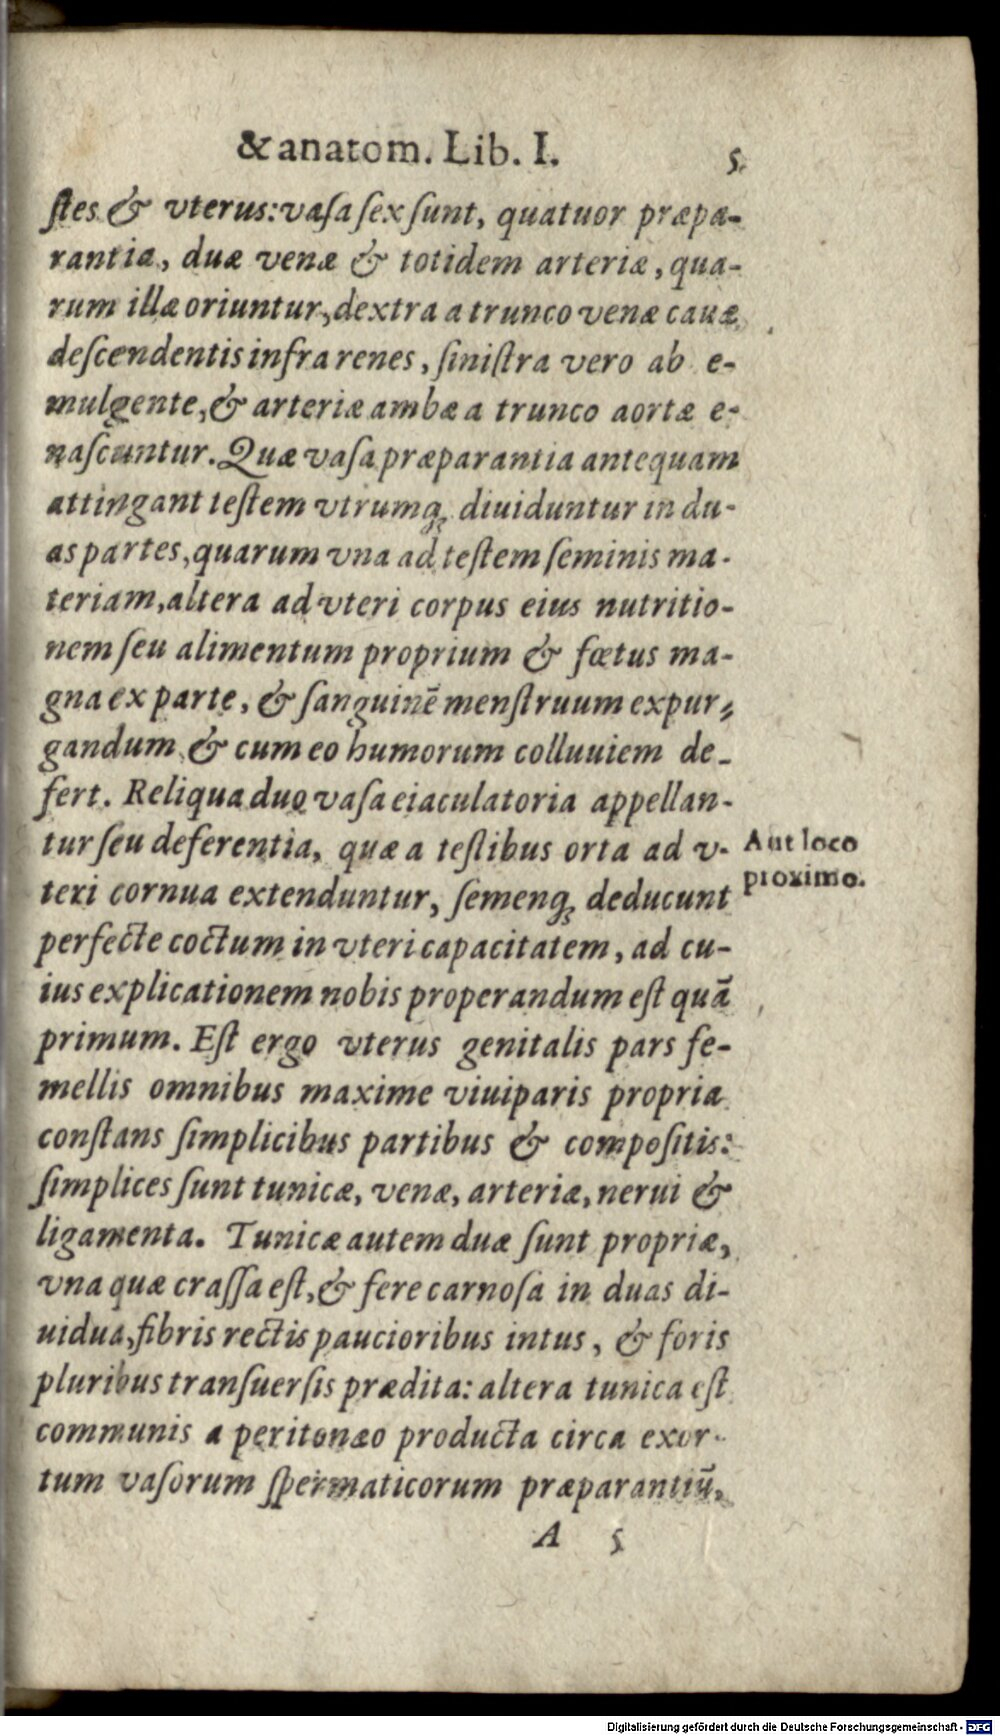 & anatom. Lib. I. 5.
ſtes & vterus: vaſa ſex ſunt, quatuor præpa-
rantia, duæ venæ & totidem arteriæ, qua-
rum illæ oriuntur, dextra a trunco venæ cauæ
deſcendentis infra renes, ſiniſtra vero ab e-
mulgente, & arteriæ ambæ a trunco aortæ e-
naſcuntur. Quæ vaſa præparantia antequam
attingant teſtem vtrumq; diuiduntur in du-
as partes, quarum vna ad teſtem ſeminis ma-
teriam, altera ad vteri corpus eius nutritio-
nem ſeu alimentum proprium & fœtus ma-
gna ex parte, & ſanguinē menſtruum expur-
gandum & cum eo humorum colluuiem de-
fert. Reliqua duo vaſa eiaculatoria appellan-
tur ſeu deferentia, quæ a teſtibus orta ad v-
teri cornua extenduntur, ſemenq; deducunt
perfecte coctum in vteri capacitatem, ad cu-
ius explicationem nobis properandum eſt quā
primum. Eſt ergo vterus genitalis pars fe-
mellis omnibus maxime viuiparis propria
conſtans ſimplicibus partibus & compoſitis:
ſimplices ſunt tunicæ, venæ, arteriæ, nerui &
ligamenta. Tunicæ autem duæ ſunt propriæ,
vna quæ craſſa eſt, & fere carnoſa in duas di-
uidua, fibris rectis paucioribus intus, & foris
pluribus transuerſis prædita: altera tunica eſt
communis a peritonæo producta circa exor-
tum vaſorum ſpermaticorum præparantiū,
A 5
Aut loco
proximo.
Digitalisierung gefördert durch die Deutsche Forschungsgemeinschaft - DFG